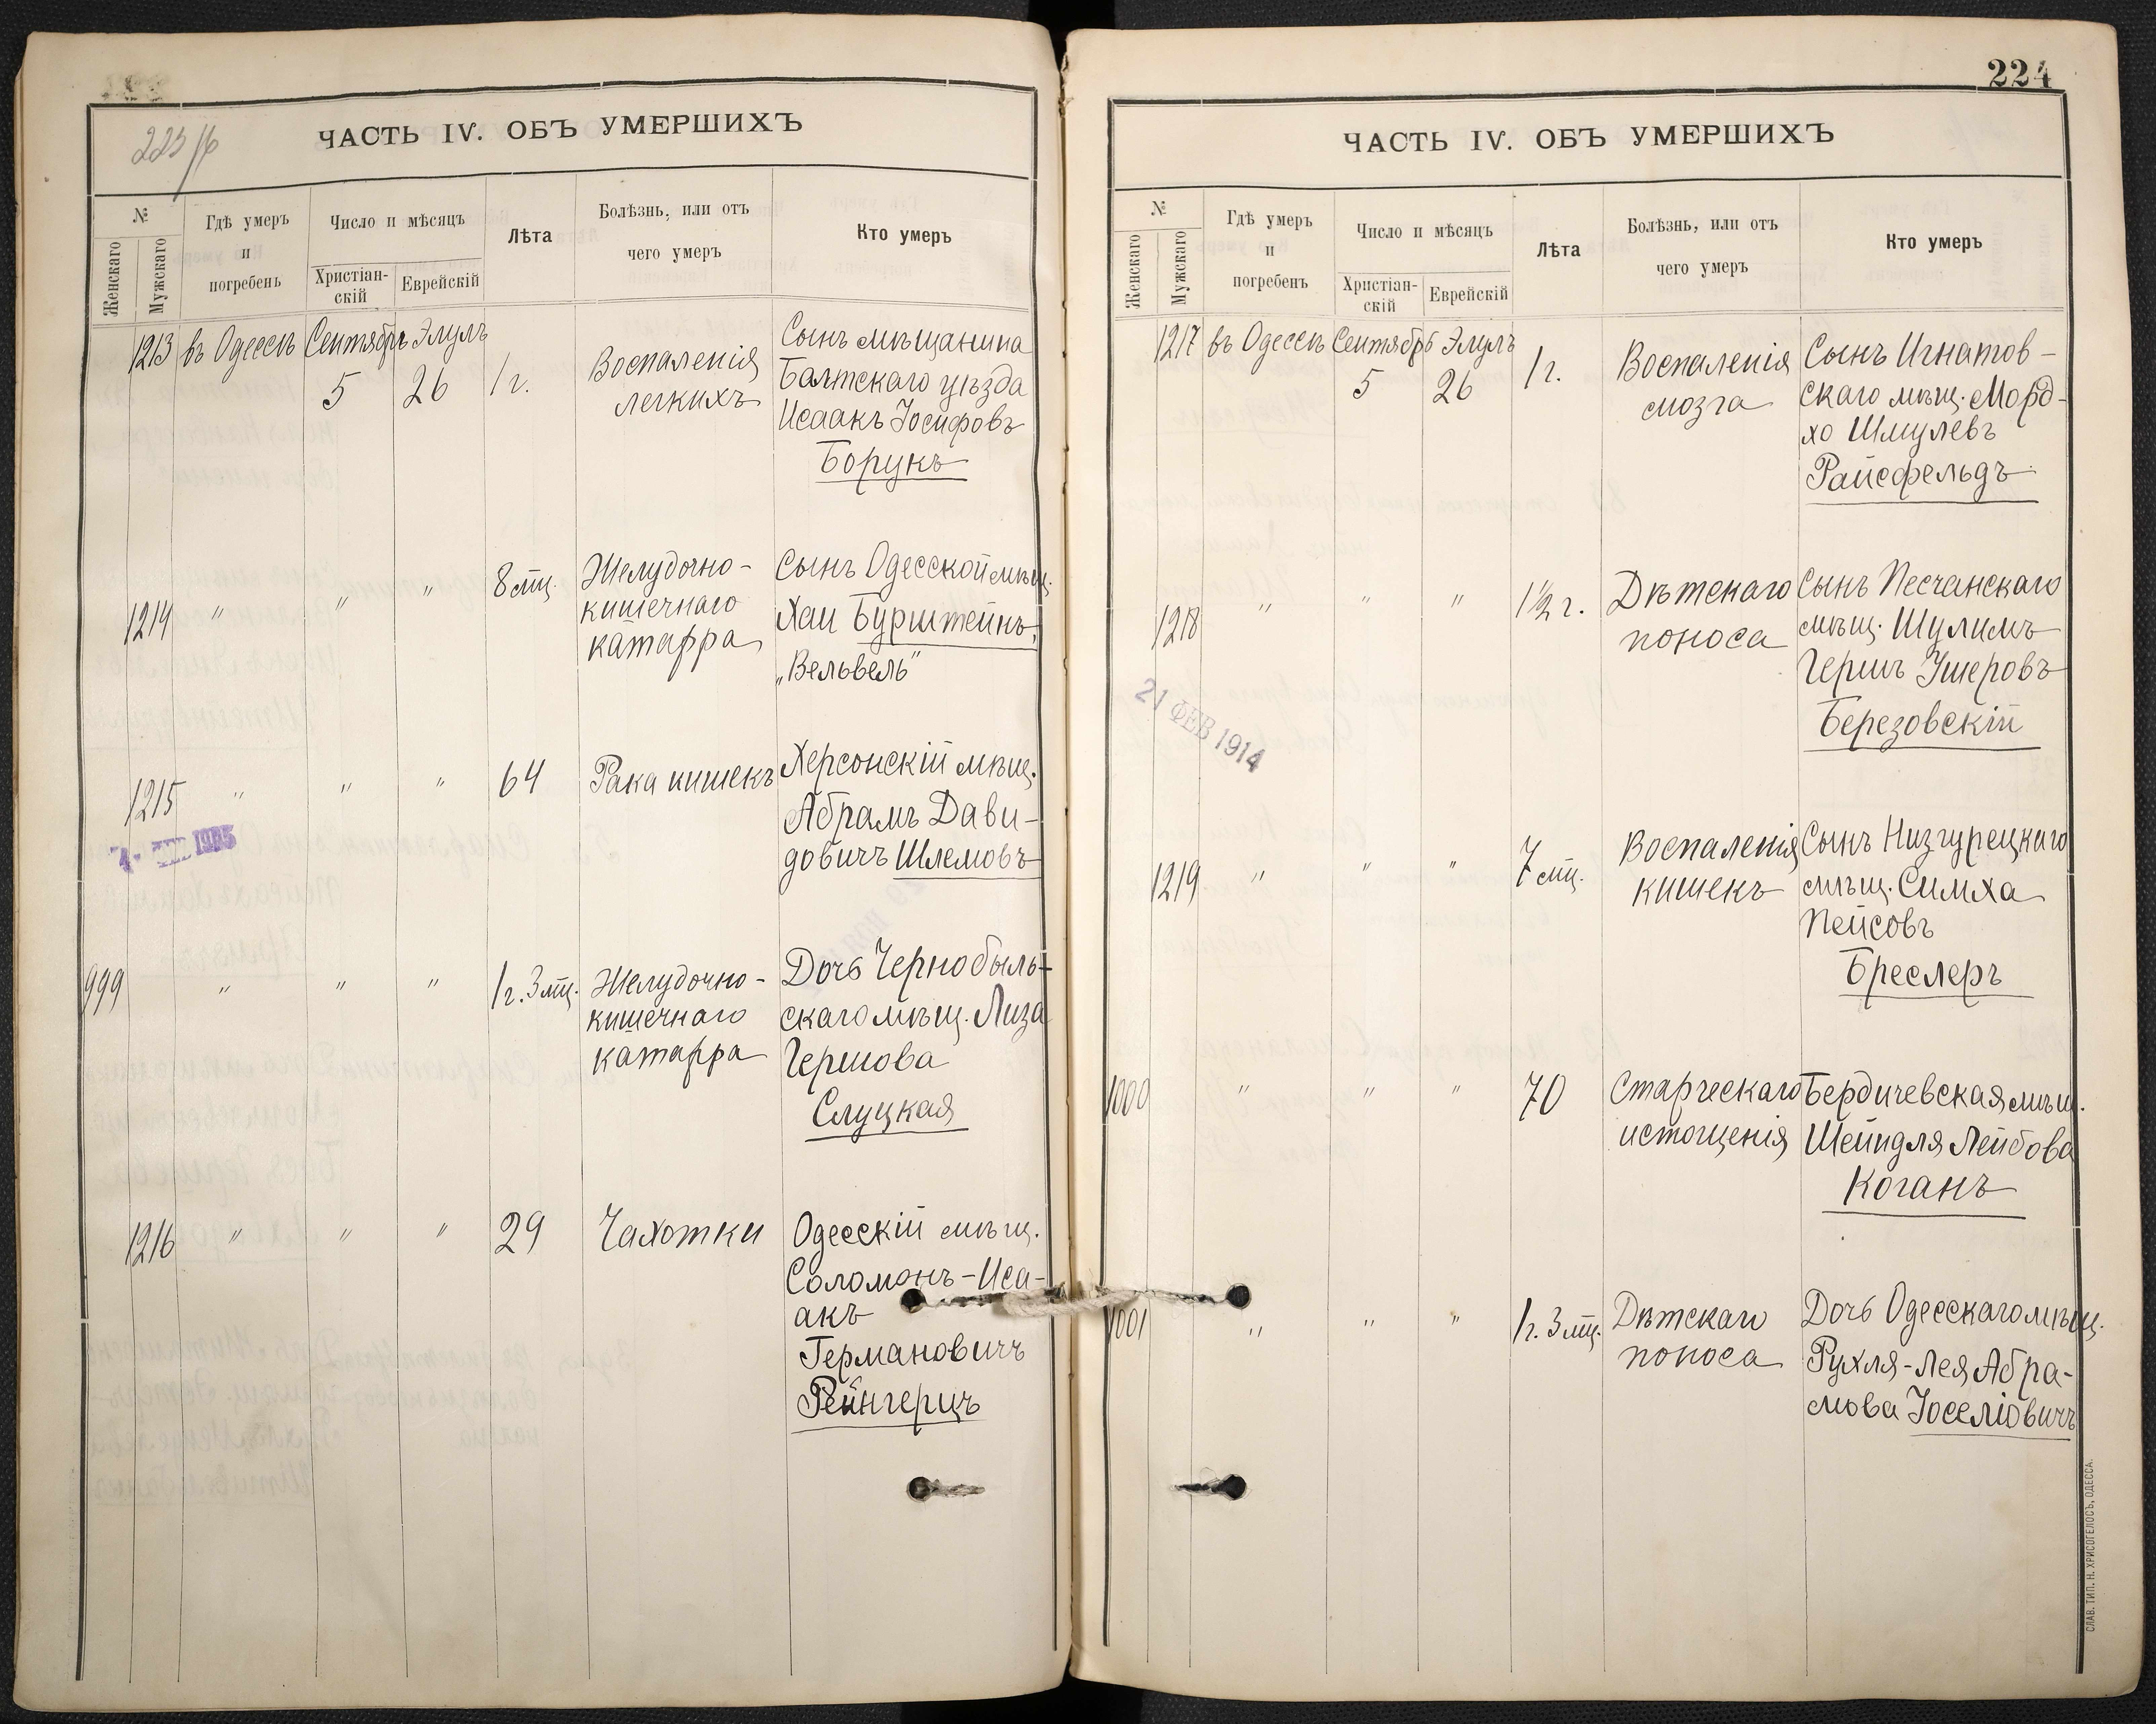 223/б
ЧАСТЬ IV. ОБЪ УМЕРШИХЪ
№
Женскаго
Мужскаго
Гдѣ умеръ
и
погребенъ
Число и мѣсяцъ
Христіан-
скій
Еврейскій
Лѣта
Болѣзнь, или отъ
чего умеръ
Кто умеръ
1213 въ Одессѣ Сентябрь Элулъ
5 26 1 г.
Воспаленія
легкихъ
Сынъ мѣщанина
Балтскаго уѣзда
Исаакъ Іосифовъ
Борукъ
1214 " " " 8 мц.
Желудочно-
кишечнаго
катарра
Сынъ Одесской мѣщ.
Хаи Бурштейнъ,
„Вельвель"
1215 " " " 64 Рака кишекъ
Херсонскій мѣщ.
Абрамъ Дави-
довичъ Шлемовъ
999 " " " 1 г. 3 мц.
Желудочно-
кишечнаго
катарра
Дочь Чернобыль-
скаго мѣщ. Лиза
Гершова
Слуцкая
1216 " " " 29 Чахотки
Одесскій мѣщ.
Соломонъ-Иса-
акъ
Германовичъ
Рейнгерцъ
224
ЧАСТЬ IV. ОБЪ УМЕРШИХЪ
№
Женскаго
Мужскаго
Гдѣ умеръ
и
погребенъ
Число и мѣсяцъ
Христіан-
скій
Еврейскій
Лѣта
Болѣзнь, или отъ
чего умеръ
Кто умеръ
1217 въ Одессѣ Сентябрь Элулъ
5 26 1 г.
Воспаленія
мозга
Сынъ Игнатов-
скаго мѣщ. Морд-
хо Шмулевъ
Райсфельдъ
1218 " " " 1½ г.
Дѣтскаго
поноса
Сынъ Песчанскаго
мѣщ. Шулимъ
Гершъ Ушеровъ
Березовскій
21 ФЕВ 1914
1219 " " " 7 мц.
Воспаленія
кишекъ
Сынъ Низгурецкаго
мѣщ. Симха
Пейсовъ
Бреслеръ
1000 " " " 70
Старческаго
истощенія
Бердичевская мѣщ.
Шейндля Лейбова
Коганъ
1001 " " " 1 г. 3 мц.
Дѣтскаго
поноса
Дочь Одесскаго мѣщ.
Рухля-Лея Абра-
мова Іоселіовичъ
СЛАВ. ТИП. Н. ХРИСОГЕЛОСЪ, ОДЕССА.